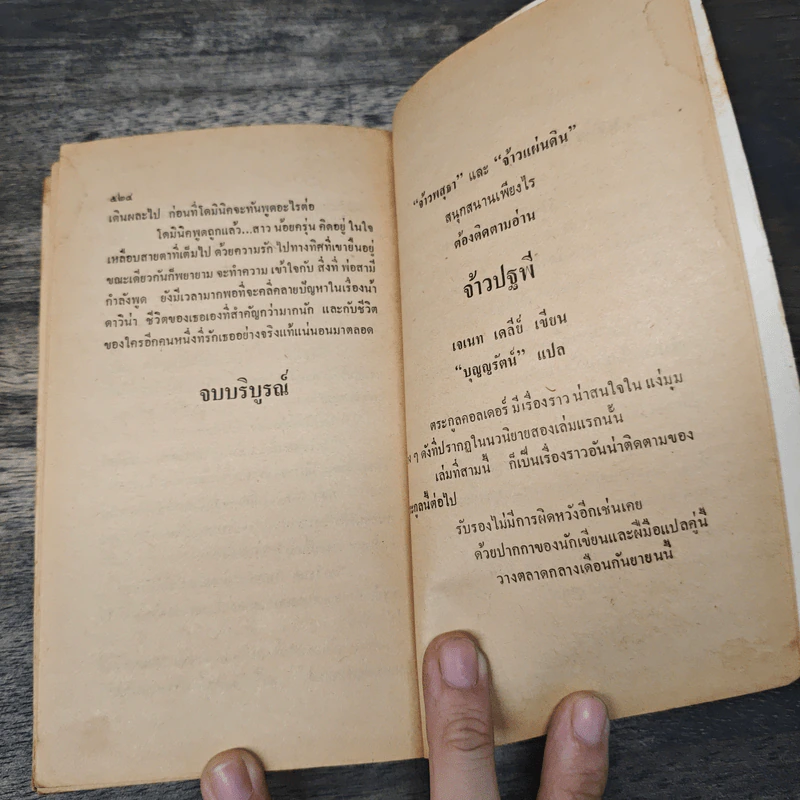 ๕๒๔
เดินผละไป ก่อนที่โดมินิคจะทันพูดอะไรต่อ
โดมินิคพูดถูกแล้ว...สาว น้อยครุ่น คิดอยู่ ในใจ
เหลือบสายตาที่เต็มไป ด้วยความรัก ไปทางทิศที่เขายืนอยู่
ขณะเดียวกันก็พยายาม จะทำความ เข้าใจกับ สิ่งที่ พ่อสามี
กำลังพูด ยังมีเวลามากพอที่จะคลี่คลายปัญหาในเรื่องน้า
ดาวิน่า ชีวิตของเธอเองที่สำคัญกว่ามากนัก และกับชีวิต
ของใครอีกคนหนึ่งที่รักเธออย่างจริงแท้แน่นอนมาตลอด
จบบริบูรณ์
“จ้าวพสุธา” และ “จ้าวแผ่นดิน”
สนุกสนานเพียงไร
ต้องติดตามอ่าน
จ้าวปฐพี
เจเนท เดลีย์ เขียน
“บุญญรัตน์” แปล
ตระกูลคอลเดอร์ มีเรื่องราว น่าสนใจใน แง่มุม
ง ๆ ดังที่ปรากฏในนวนิยายสองเล่มแรกนั้น
เล่มที่สามนี้ ก็เป็นเรื่องราวอันน่าติดตามของ
ะกูลนี้ต่อไป
รับรองไม่มีการผิดหวังอีกเช่นเคย
ด้วยปากกาของนักเขียนและฝีมือแปลคู่นี้
วางตลาดกลางเดือนกันยายนนี้